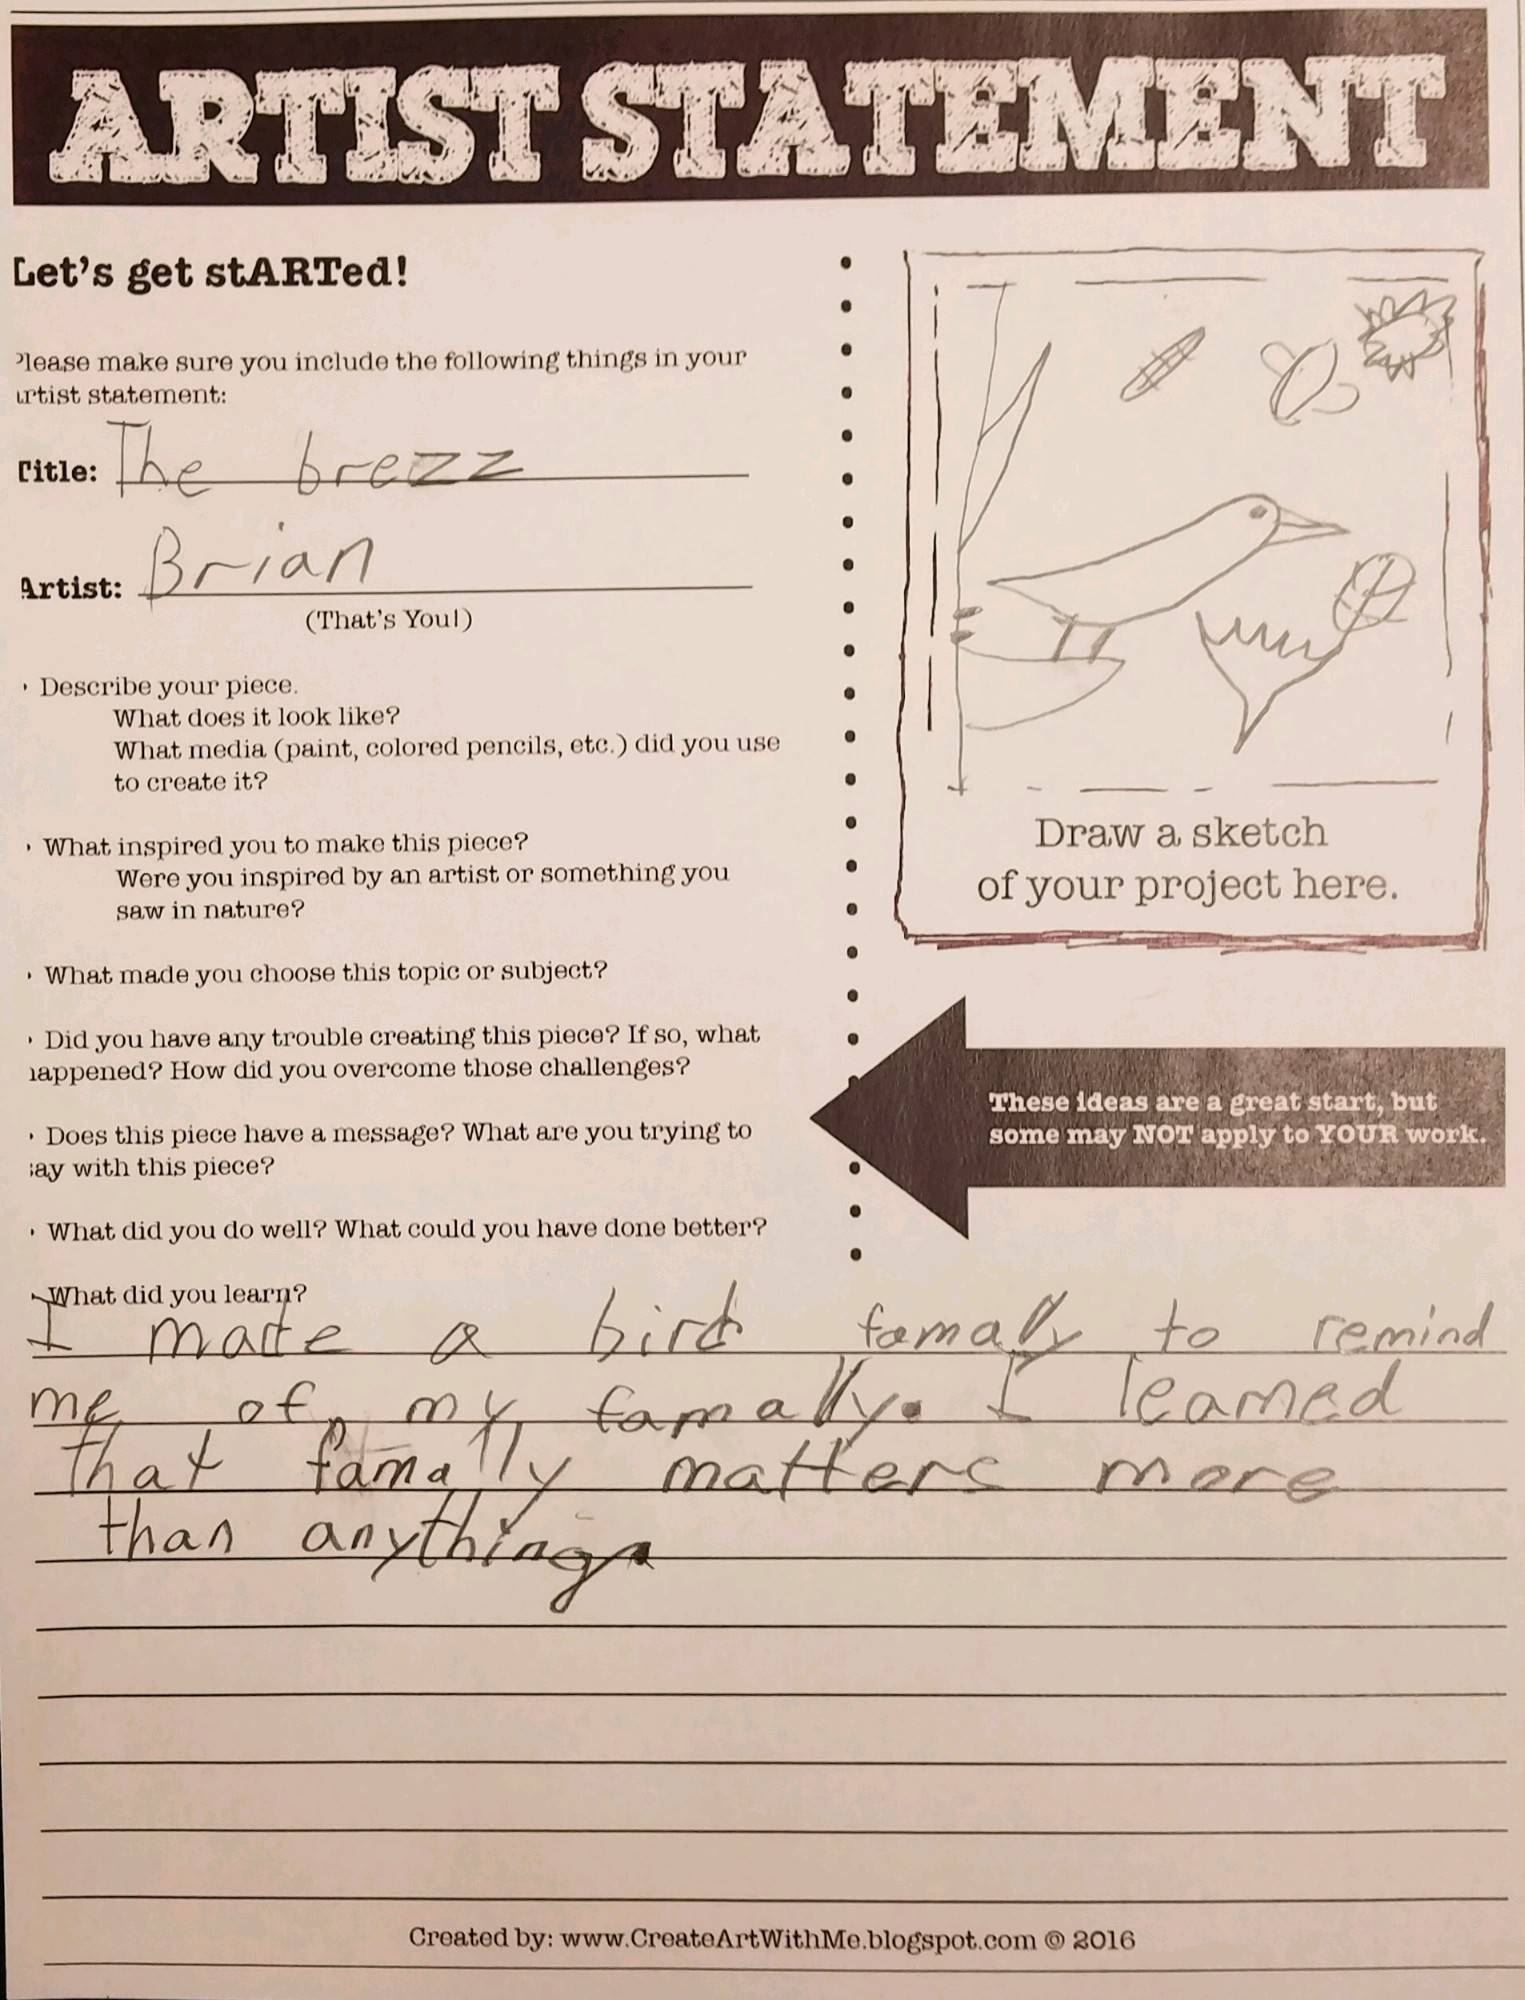 ARTIST STATEMENT
Let's get stARTed!
Please make sure you include the following things in your
artist statement:
Title: The brezz
Artist: Brian
(That's You!)
· Describe your piece.
What does it look like?
What media (paint, colored pencils, etc.) did you use
to create it?
· What inspired you to make this piece?
Were you inspired by an artist or something you
saw in nature?
· What made you choose this topic or subject?
· Did you have any trouble creating this piece? If so, what
happened? How did you overcome those challenges?
· Does this piece have a message? What are you trying to
say with this piece?
· What did you do well? What could you have done better?
· What did you learn?
Draw a sketch
of your project here.
These ideas are a great start, but
some may NOT apply to YOUR work.
I made a bird famally to remind
me of my famally. I learned
that famally matters more
than anything.
Created by: www.CreateArtWithMe.blogspot.com © 2016